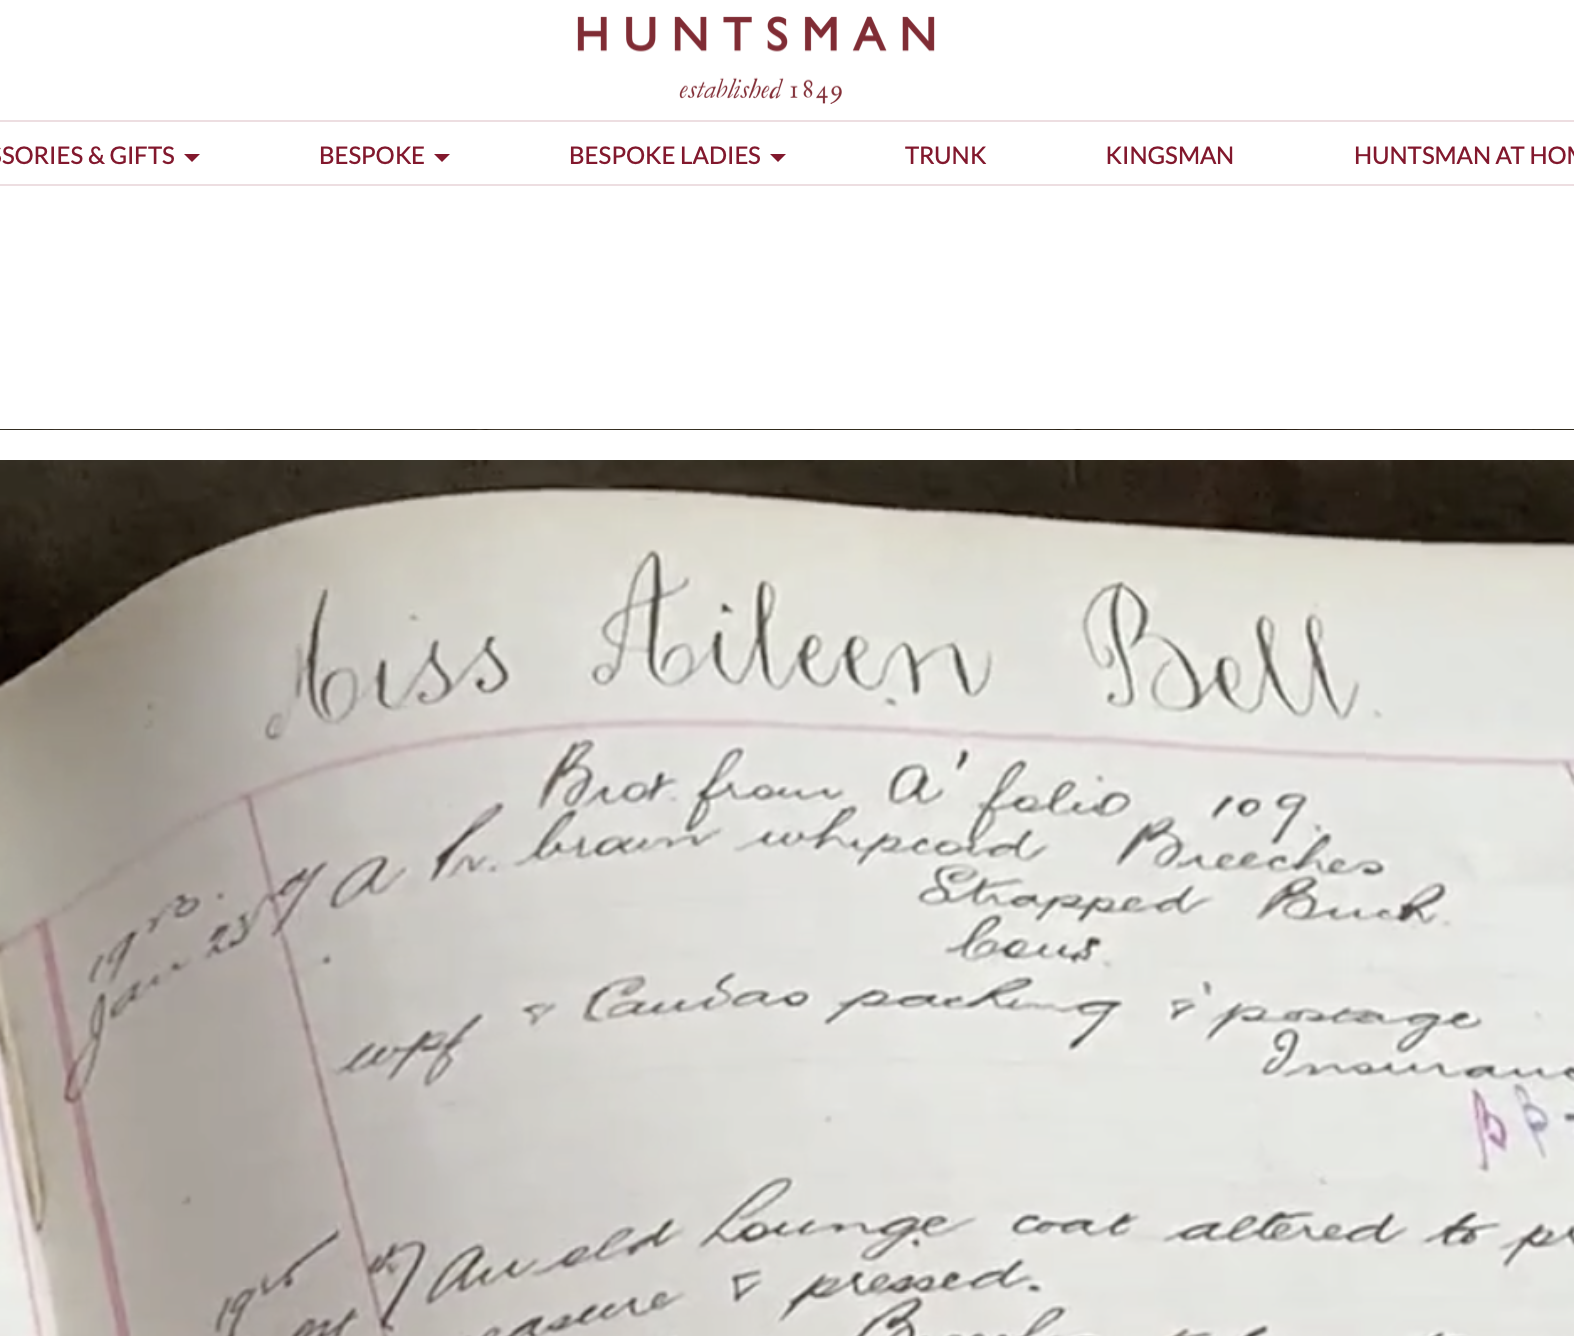 HUNTSMAN
established 1849
SSORIES & GIFTS BESPOKE BESPOKE LADIES TRUNK KINGSMAN HUNTSMAN AT HOM
Miss Aileen Bell.
Brot from A' folio 109.
Jan 23 A Pr. brown whipcord Breeches
Strapped Buck
& Canvas packing & postage
Insuranc
An old Lounge coat altered to pr
easure & pressed.